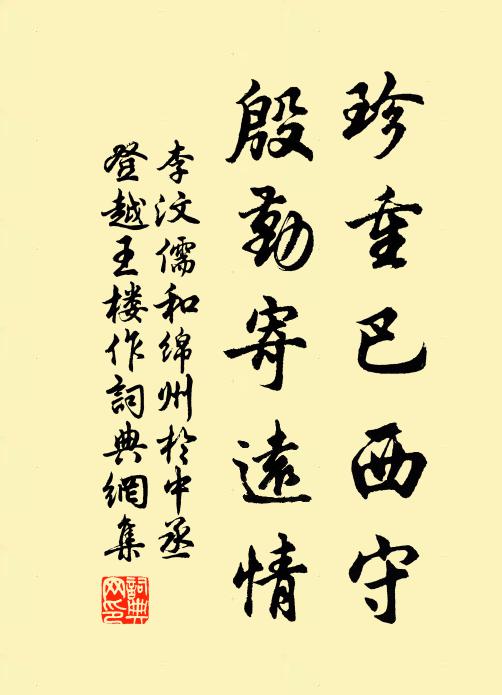 珍重巴西守
殷勤寄遠情
李汶儒和绵州於中丞
登越王楼作詞典網集